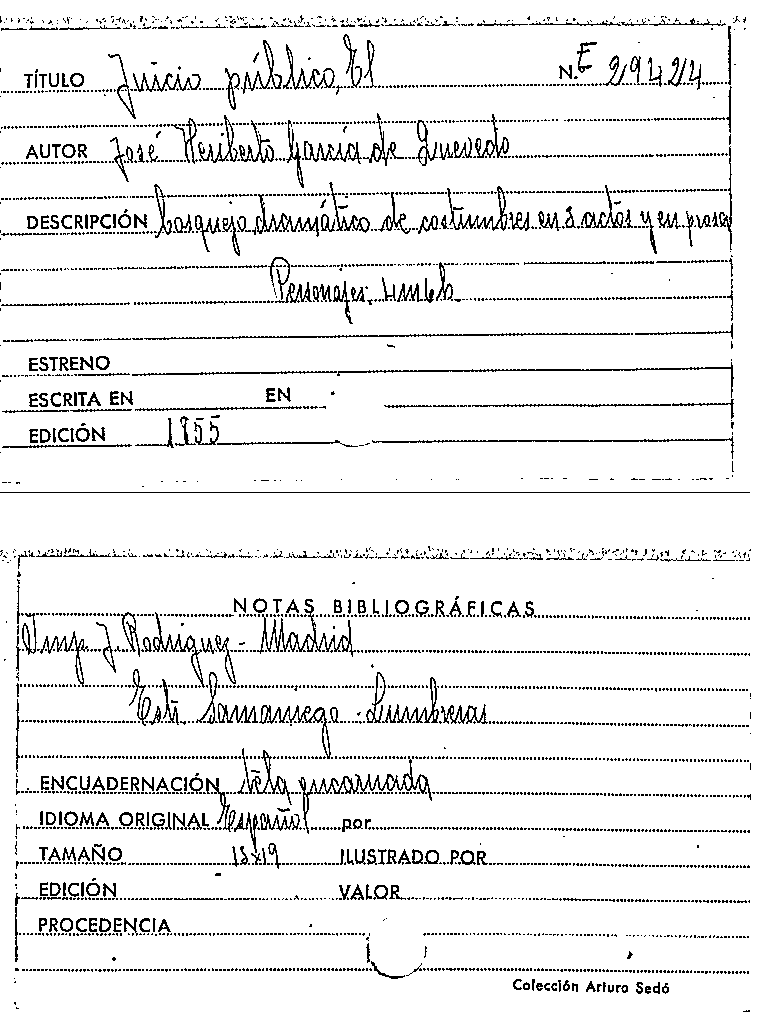 TÍTULO Juicio público, El N.E 29424
AUTOR José Heriberto García de Quevedo
DESCRIPCIÓN bosquejo dramático de costumbres en 3 actos y en prosa
Personajes: 4m 6h
ESTRENO
ESCRITA EN EN
EDICIÓN 1855
NOTAS BIBLIOGRÁFICAS
Imp. J. Rodriguez - Madrid
Samaniego - Lumbreras
ENCUADERNACIÓN tela encarnada
IDIOMA ORIGINAL Español por
TAMAÑO x19 ILUSTRADO POR
EDICIÓN VALOR
PROCEDENCIA
Colección Arturo Sedó